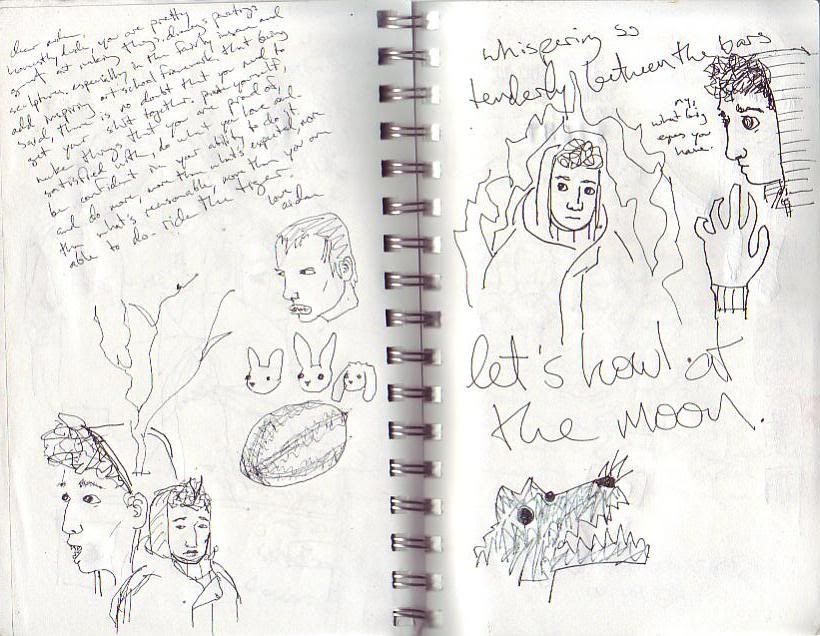 dear aidan,
honestly dude, you are pretty
great at making things. drawings, paintings
sculptures, especially in the fairly insane and
inspiring art school framework. that being
said, there is no doubt that you need to
get your shit together. push yourself,
make things that you are proud of,
satisfied with, do what you love and
be confident in your ability to do it
and do more, more than what's expected, more
than what's reasonable, more than you are
able to do. ride the tiger.
love
aidan
whispering so
tenderly between the bars
my,
what big
eyes you
have.
let's howl at
the moon.